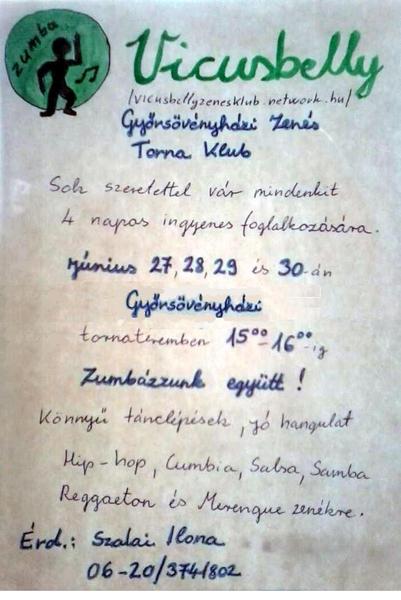 zumba
Vicusbelly
/vicusbellyzenesklub.network.hu/
Győrsövényházi Zenés
Torna Klub
Sok szeretettel vár mindenkit
4 napos ingyenes foglalkozására.
június 27, 28, 29 és 30-án
Győrsövényházi
tornateremben 15⁰⁰-16⁰⁰-ig
Zumbázzunk együtt!
Könnyű tánclépések, jó hangulat
Hip-hop, Cumbia, Salsa, Samba
Reggaeton és Merengue zenékre.
Érd.: Szalai Ilona
06-20/3741802